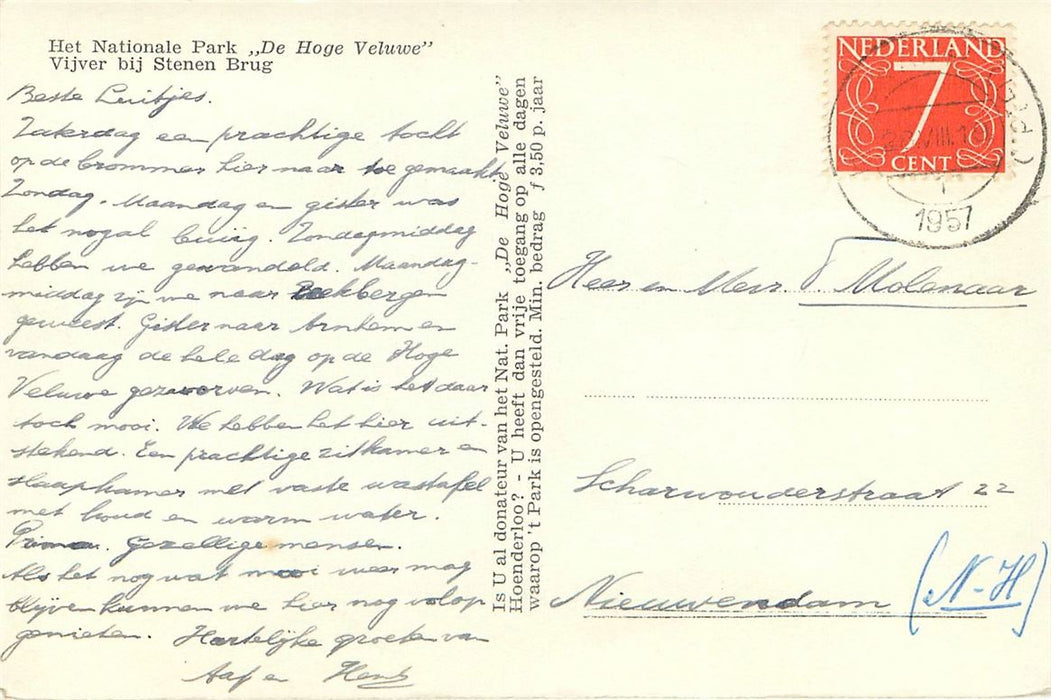 Het Nationale Park „De Hoge Veluwe”
Vijver bij Stenen Brug
Beste Luitjes.
Zaterdag een prachtige tocht
op de brommer hier naar toe gemaakt
Zondag, Maandag en gister was
het nogal buiig. Zondagmiddag
hebben we gewandeld. Maandag-
middag zijn we naar Beekbergen
geweest. Gister naar Arnhem en
vandaag de hele dag op de Hoge
Veluwe gezworven. Wat is het daar
toch mooi. We hebben het hier uit-
stekend. Een prachtige zitkamer en
slaapkamer met vaste wastafel
met koud en warm water.
Prima. Gezellige mensen.
Als het nog wat mooi weer mag
blijven kunnen we hier nog volop
genieten. Hartelijke groeten van
Aaf en Henk
Is U al donateur van het Nat. Park „De Hoge Veluwe”
Hoenderloo? - U heeft dan vrije toegang op alle dagen
waarop 't Park is opengesteld. Min. bedrag ƒ 3,50 p. jaar
NEDERLAND
7
CENT
VIII.
1957
Heer en Mevr. Molenaar
Scharwouderstraat 22
Nieuwendam (N-H)